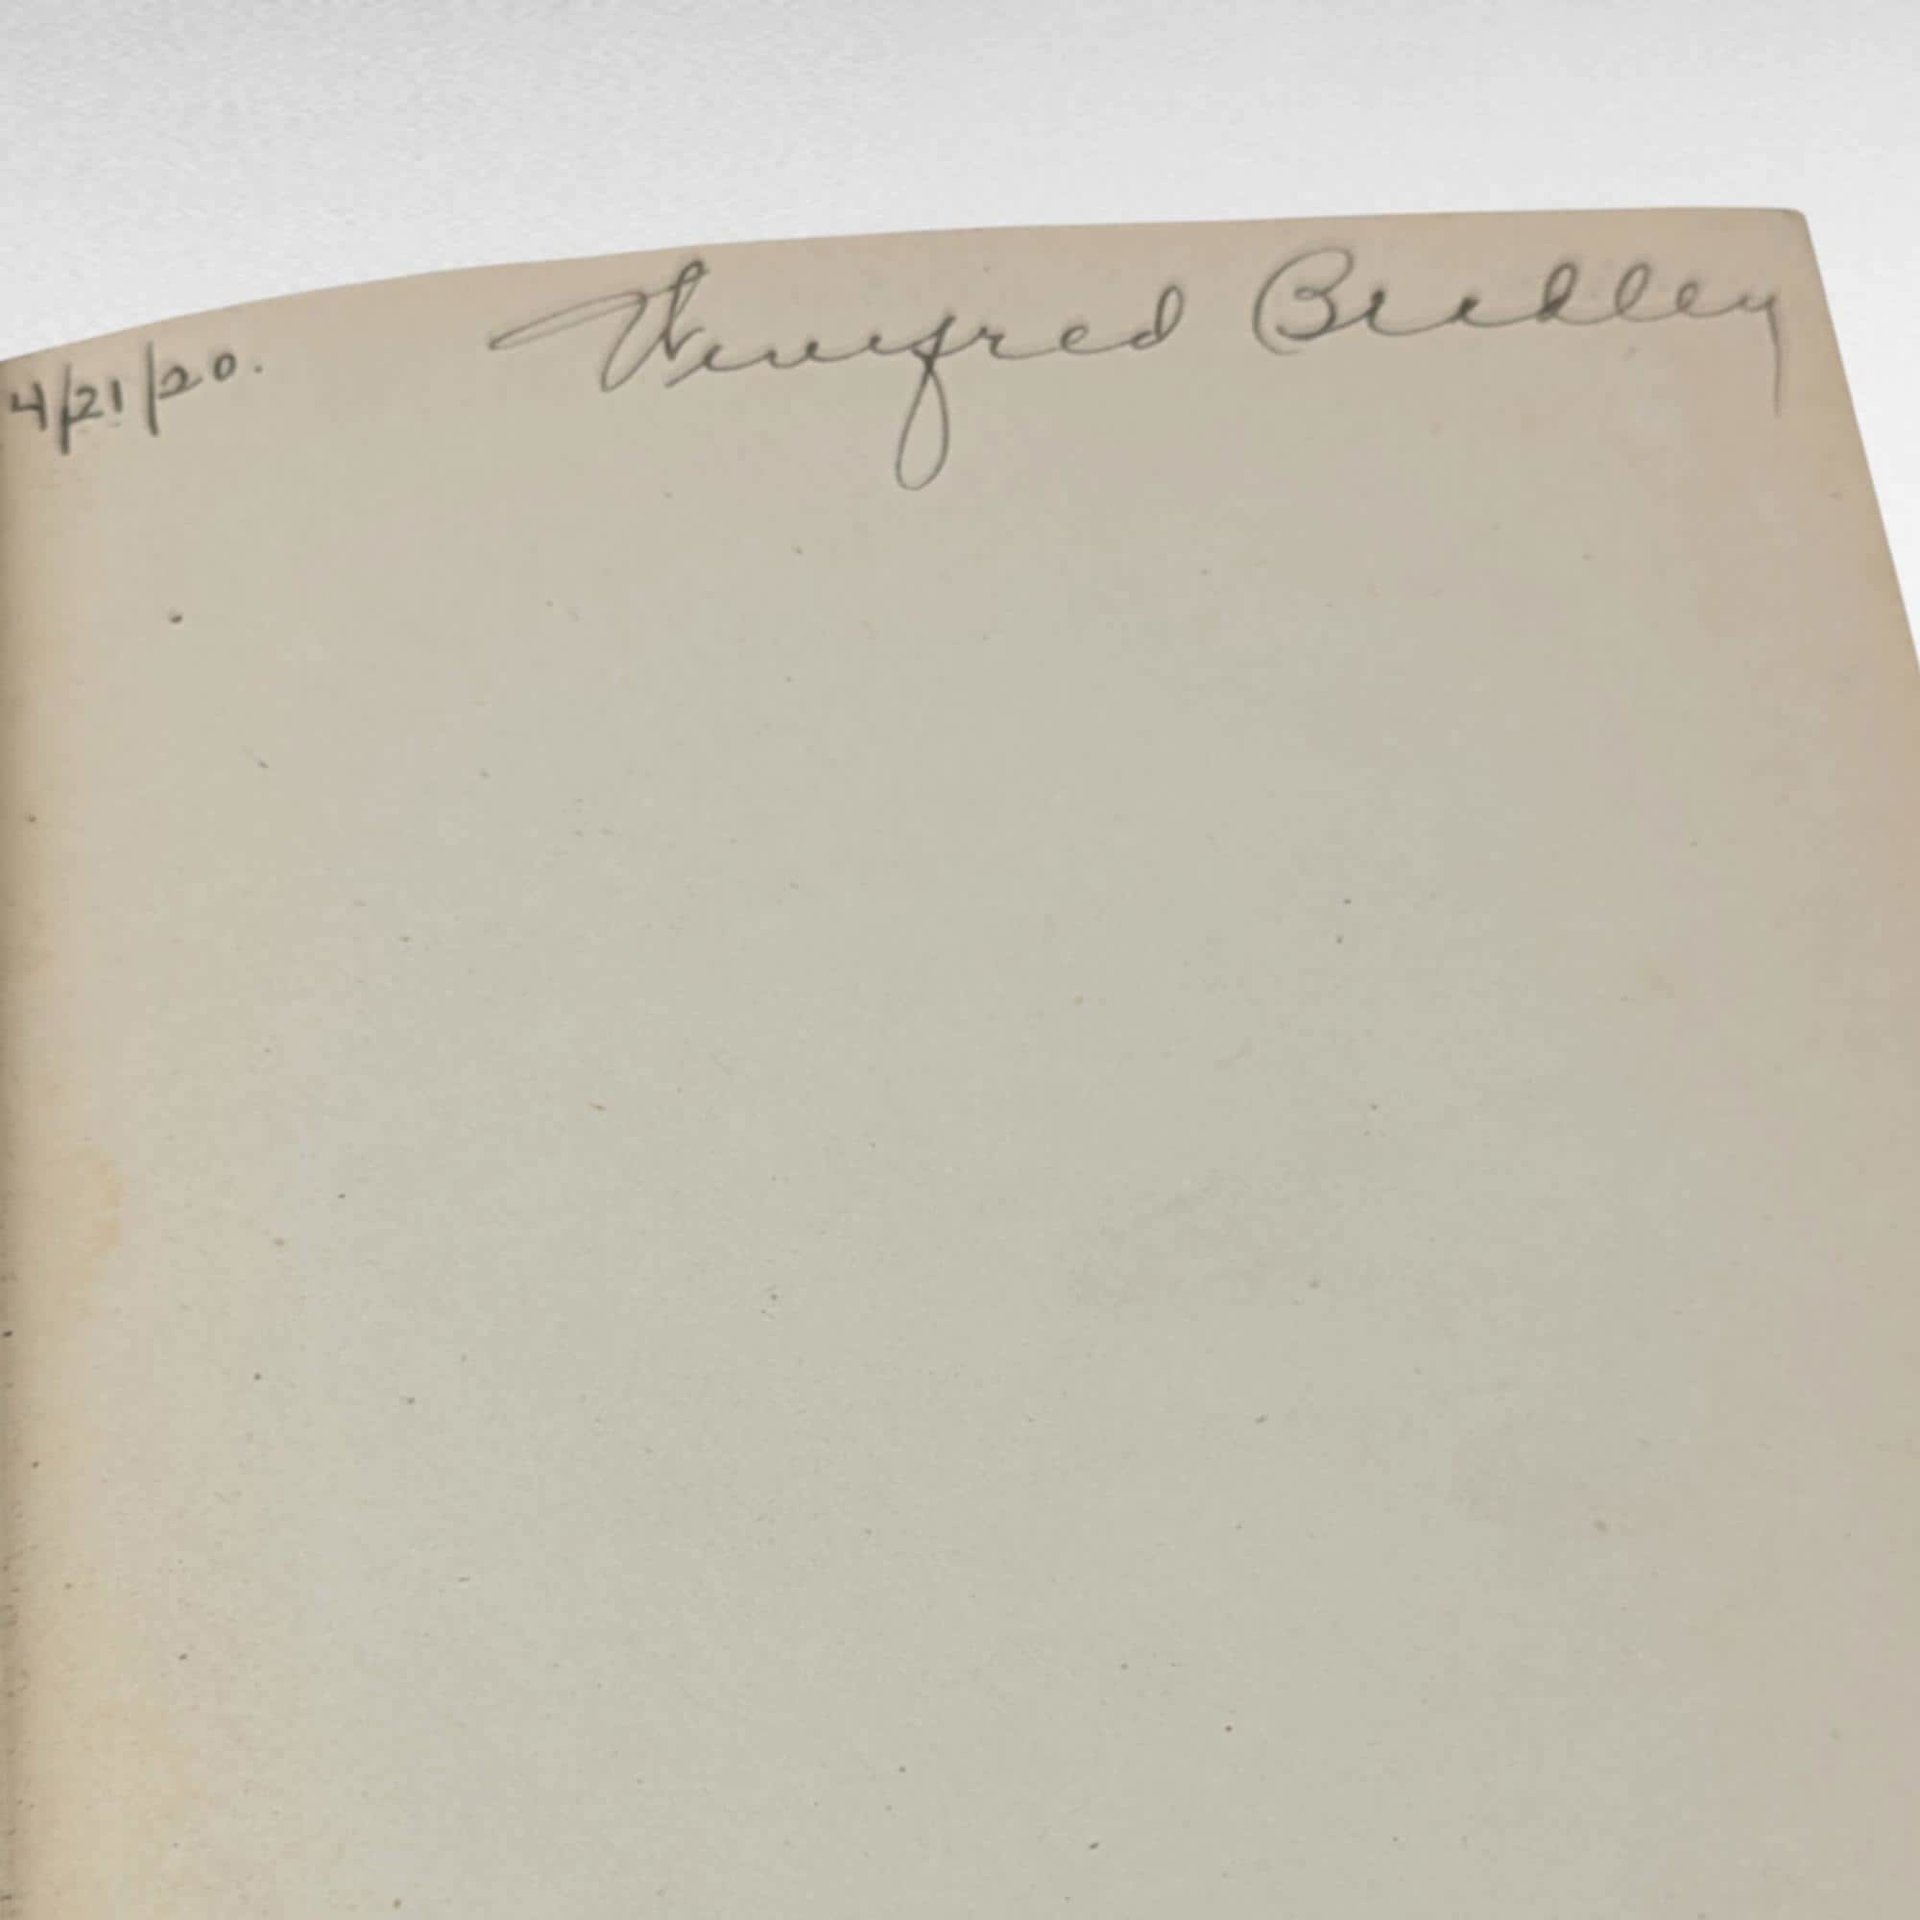 4/21/20. Winifred Bradley